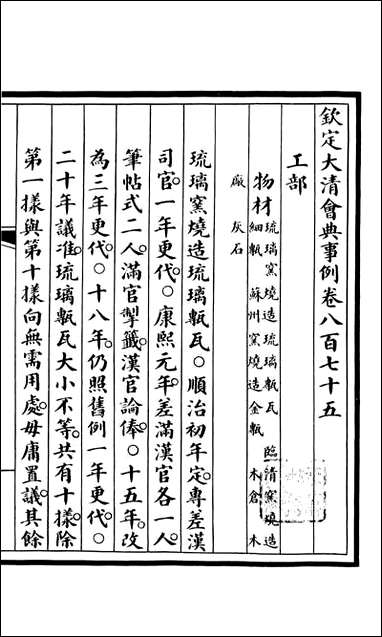 欽定大清會典事例卷八百七十五
工部
物材琉璃窯燒造琉璃甎瓦 臨清窯燒造
細甎 蘇州窯燒造金甎 木倉 木
廠 灰石
琉璃窯燒造琉璃甎瓦○順治初年定專差漢
司官一年更代○康熙元年差滿漢官各一人
筆帖式二人滿官掣籤漢官論俸○十五年改
為三年更代○十八年仍照舊例一年更代○
二十年議准琉璃甎瓦大小不等共有十樣除
第一樣與第十樣向無需用處毋庸置議其餘